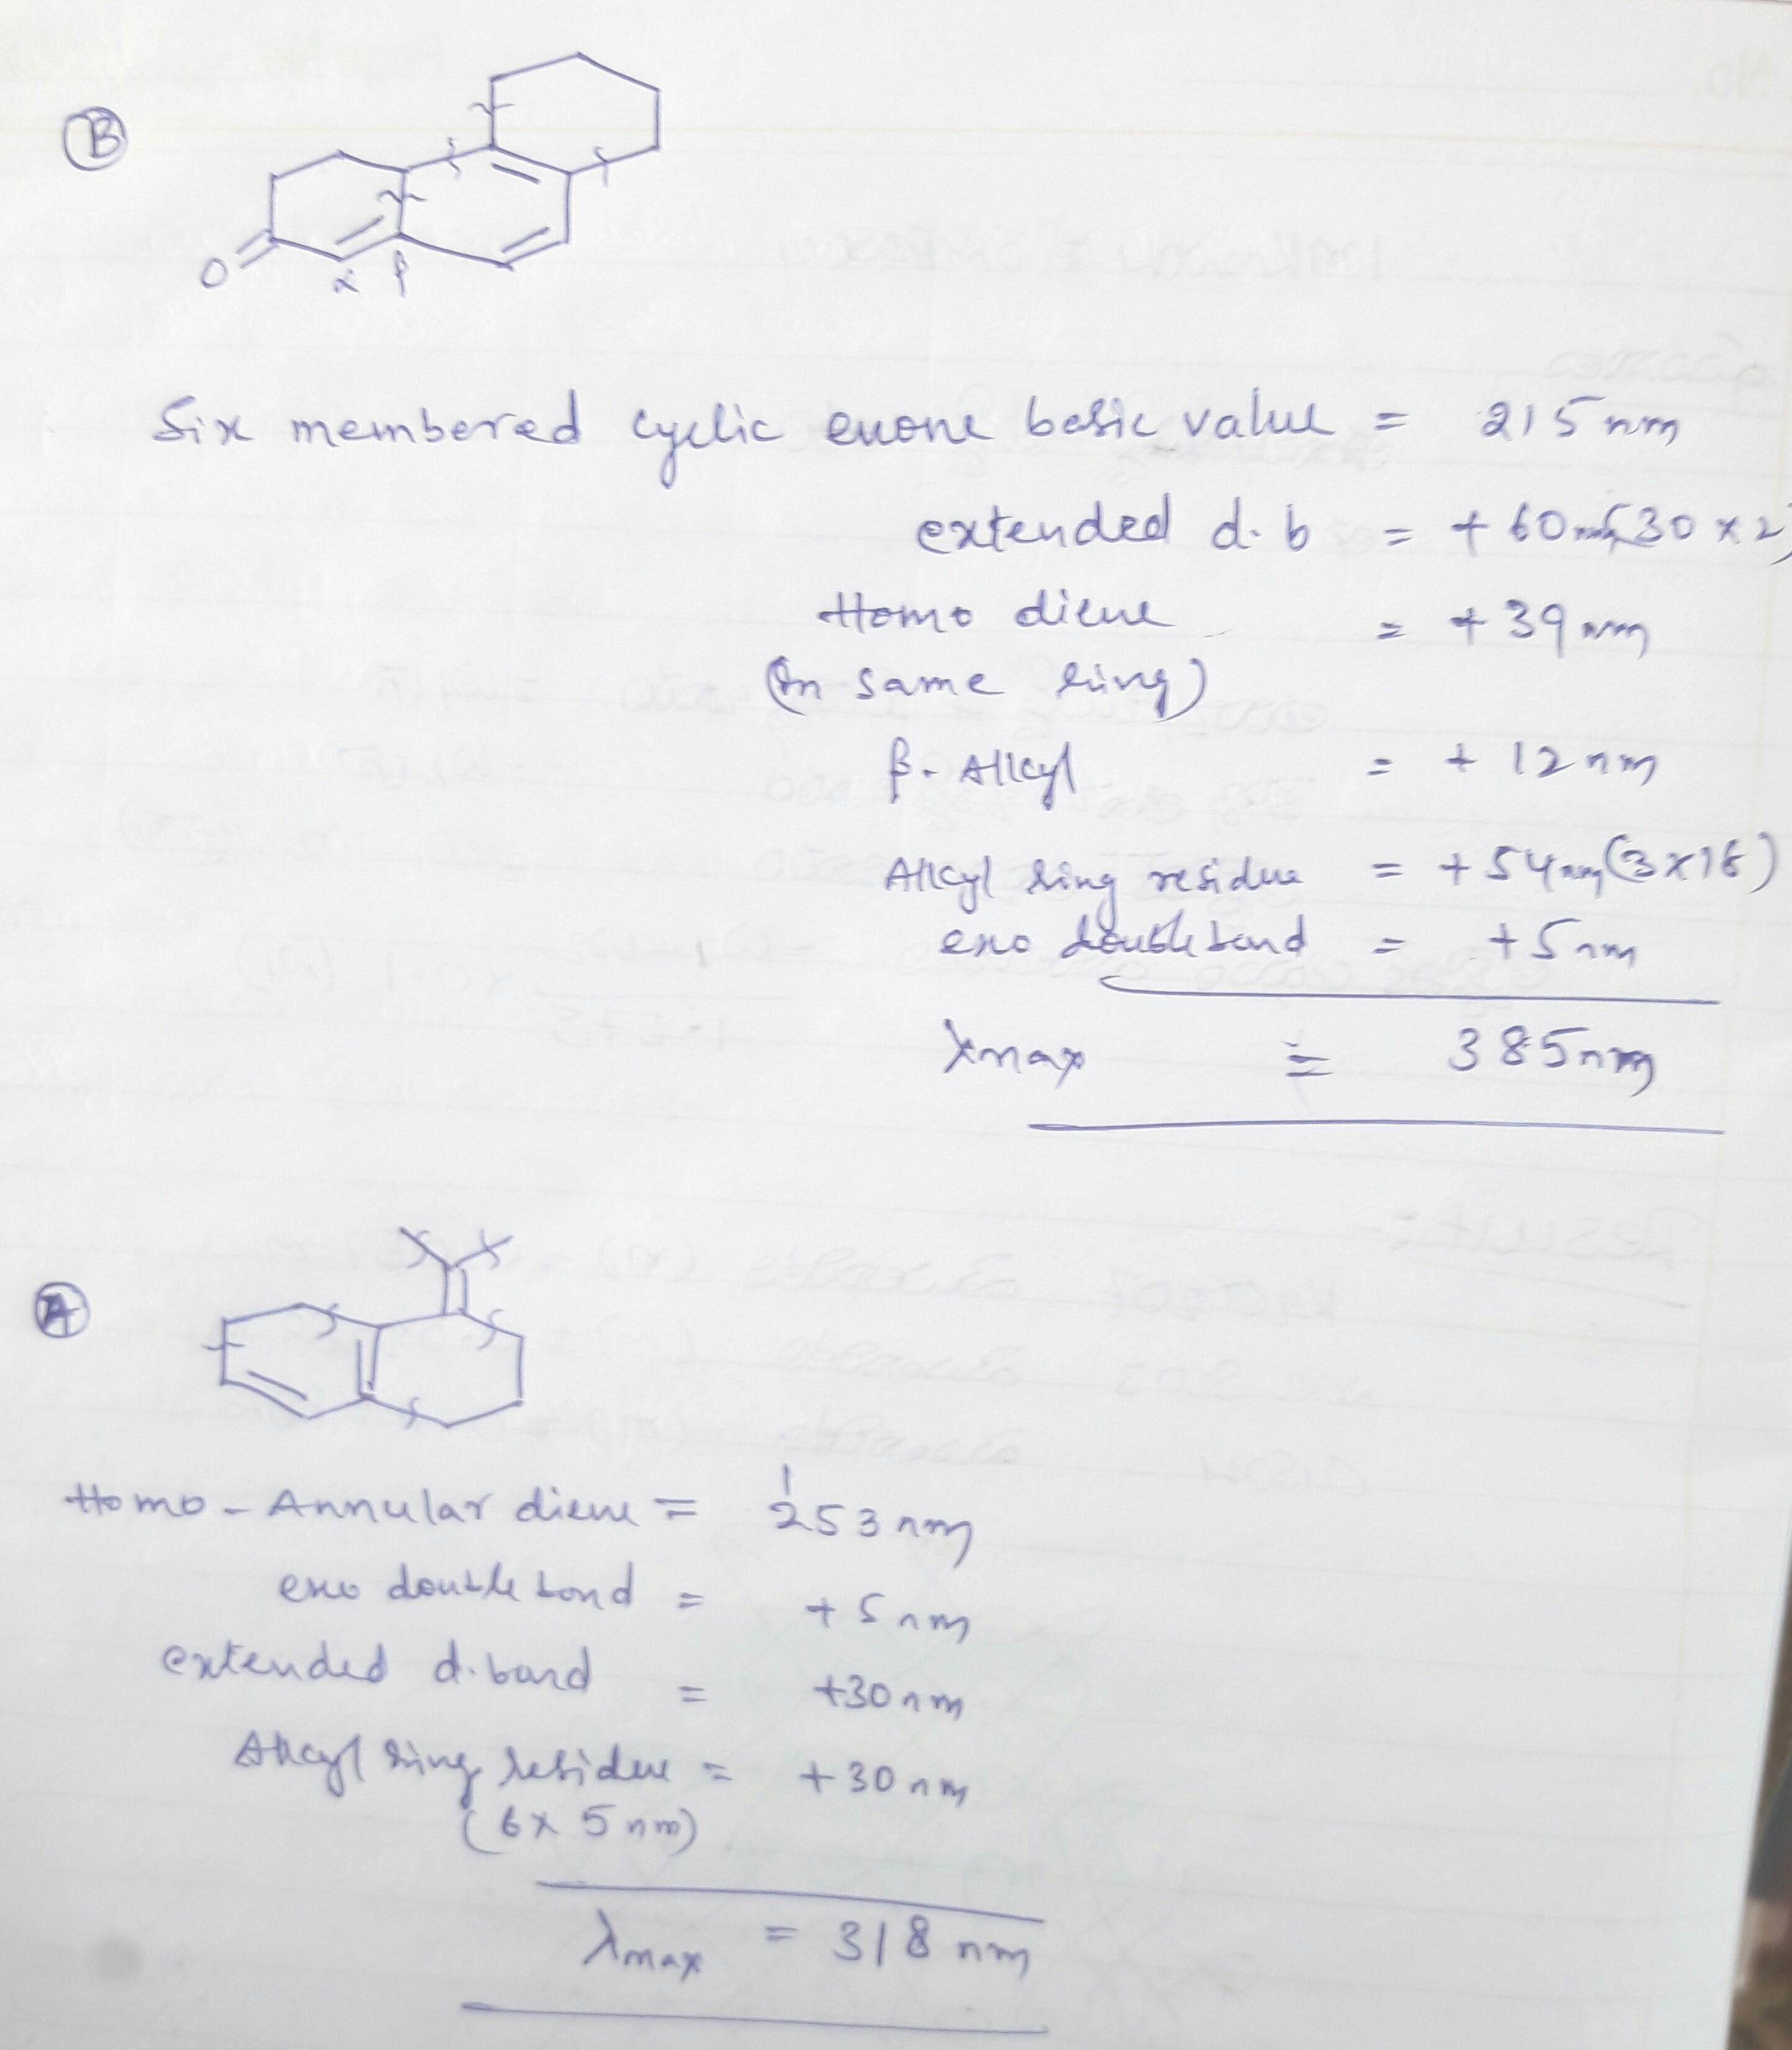 B
O
α β
Six membered cyclic enone basic value = 215 nm
extended d.b = + 60 nm (30 x 2)
Homo diene = + 39 nm
(In same ring)
β-Alkyl = + 12 nm
Alkyl ring residue = + 54 nm (3x18)
exo double bond = +5nm
λmax = 385nm
A
Homo-Annular diene = 253 nm
exo double bond = +5 nm
extended d.bond = +30 nm
Alkyl ring residue = +30 nm
(6x 5 nm)
λmax = 318 nm